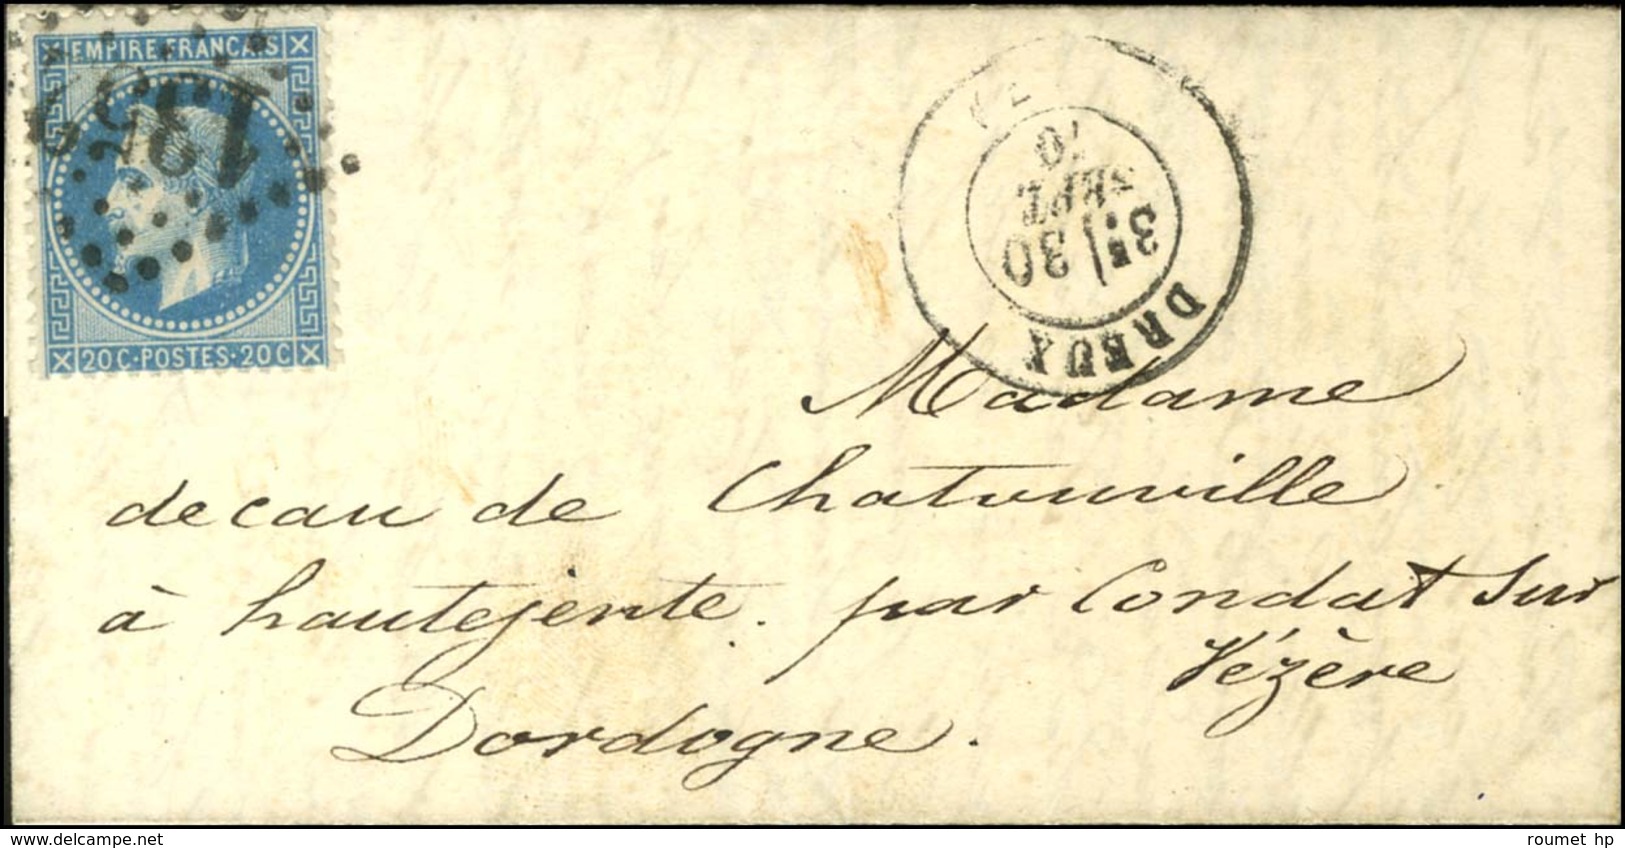 EMPIRE FRANCAIS
20 C · POSTES · 20 C
DREUX
3E
30
SEPT
70
Madame
de cau de Chatouville
à hautejente. par Condat Sur
Vézère
Dordogne.
roumet hp